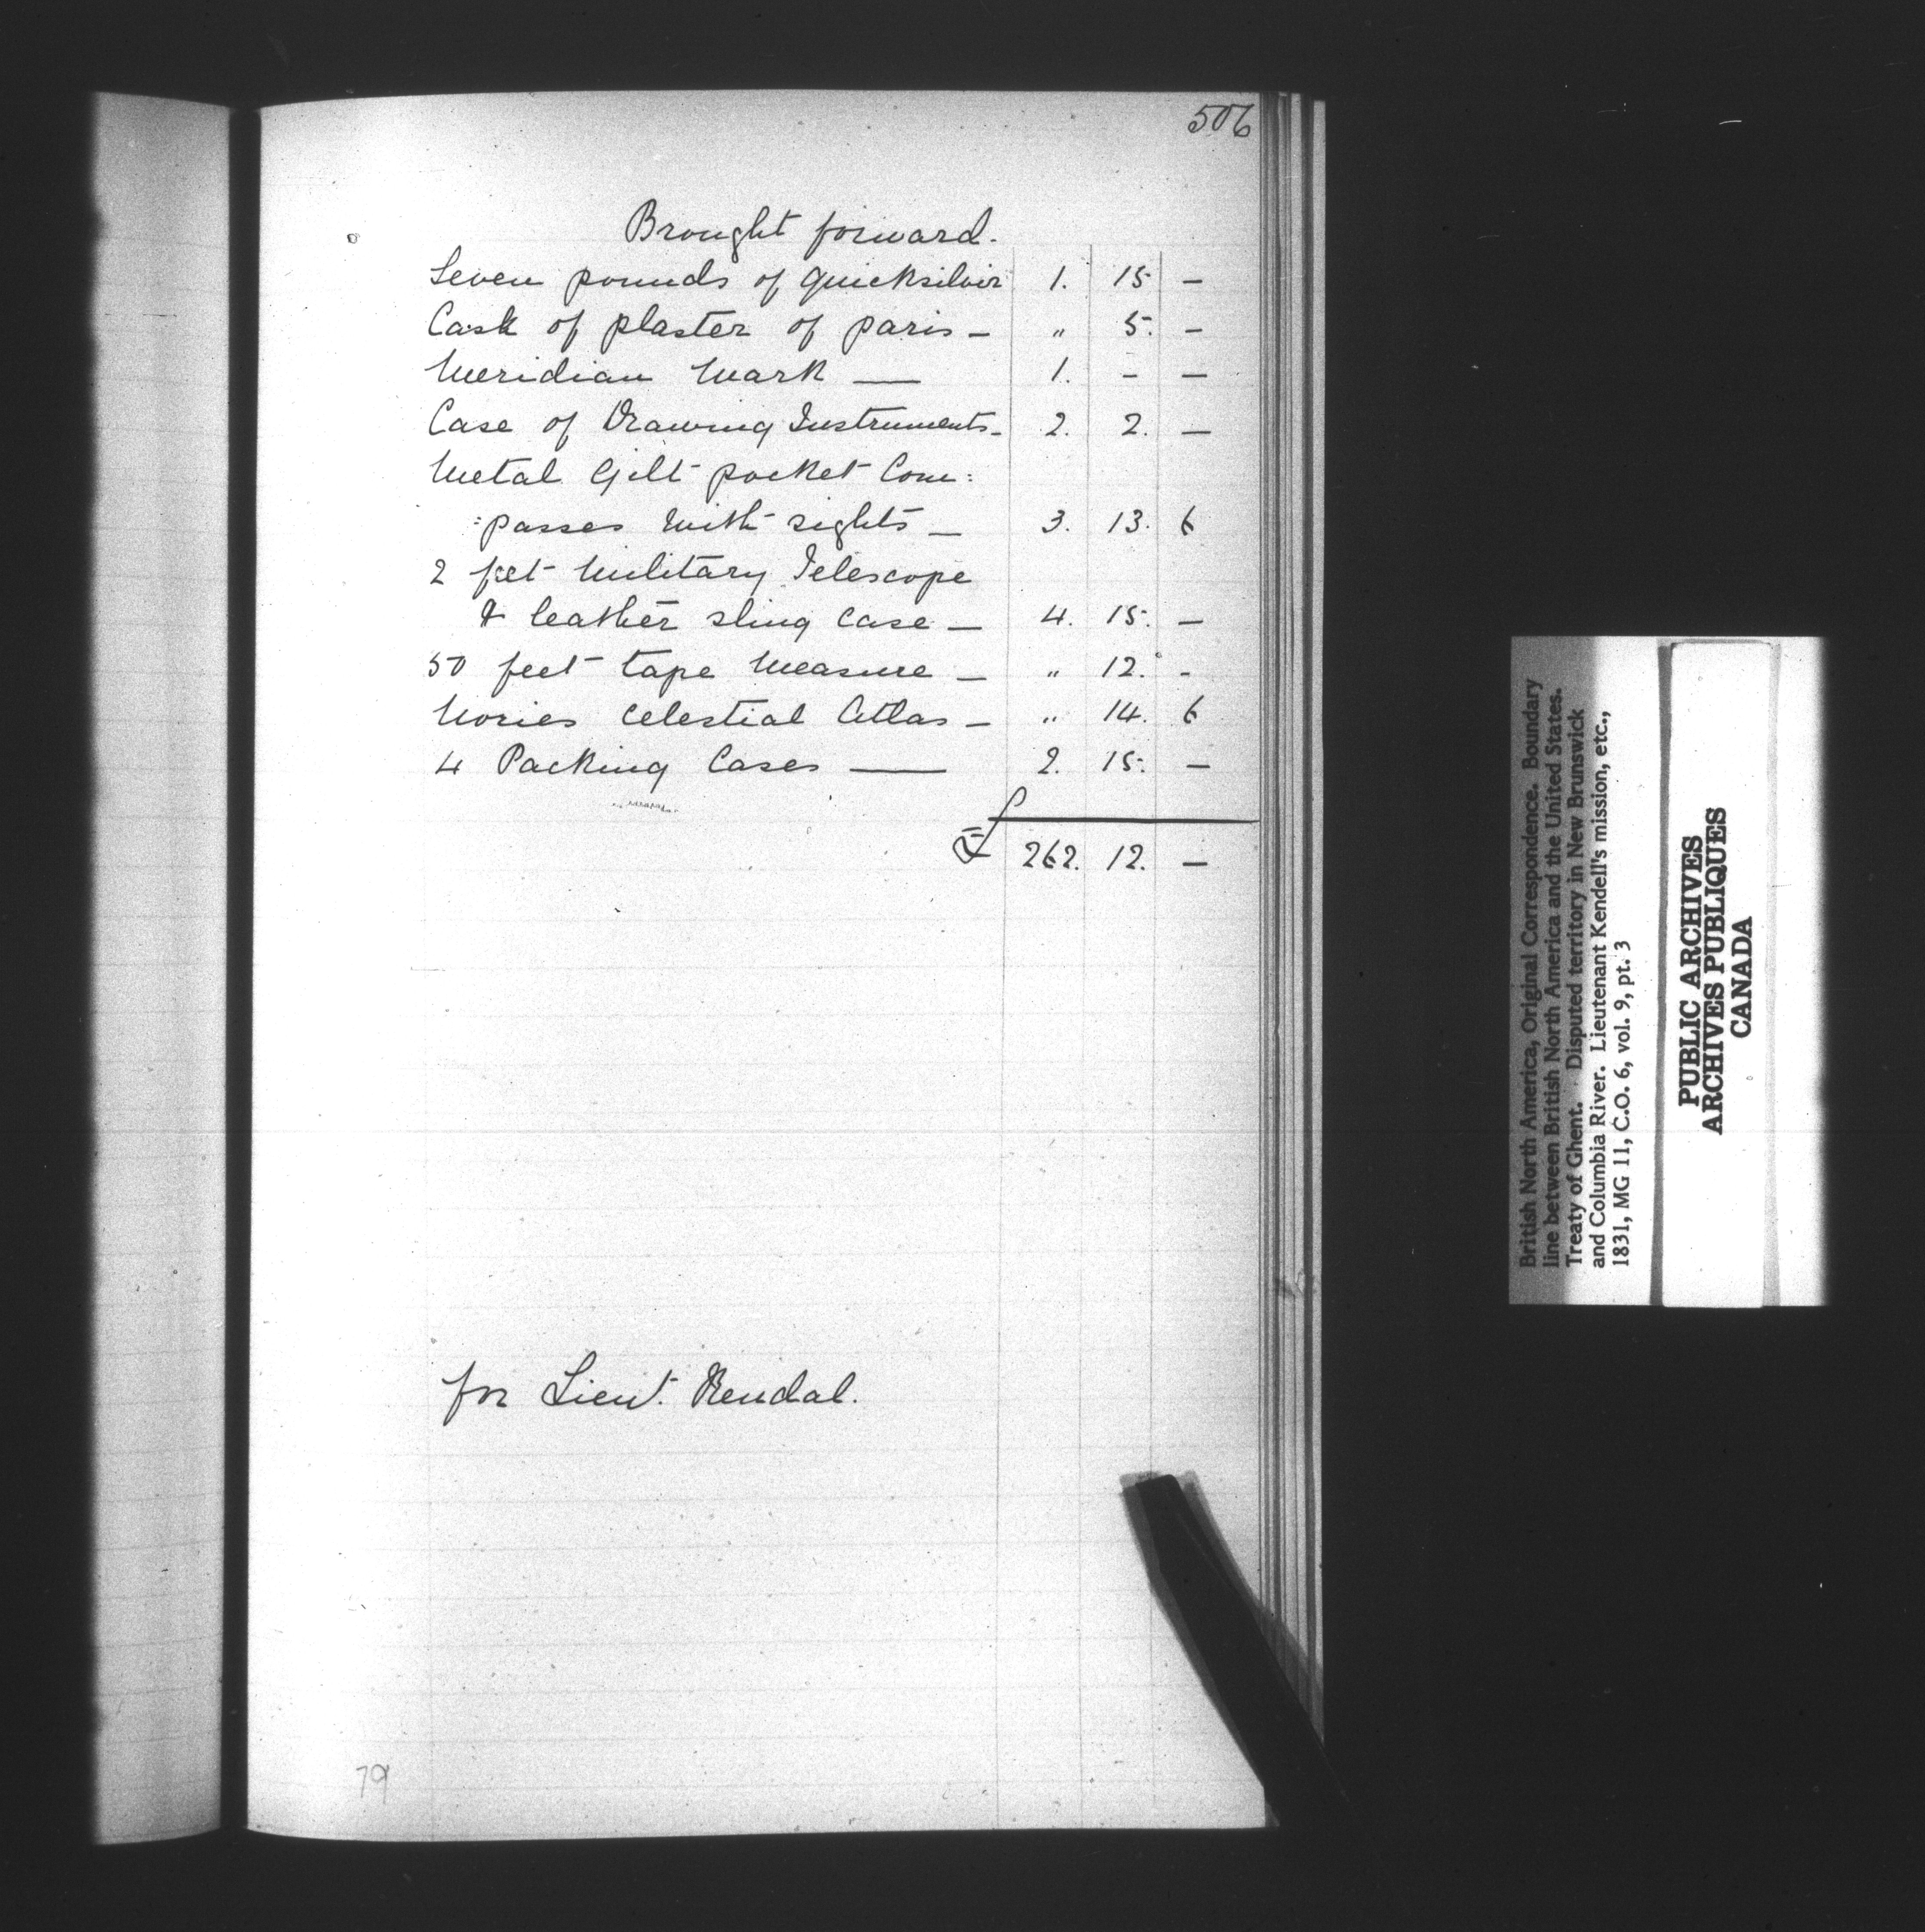 506
Brought forward.
Seven pounds of quicksilver 1. 15 —
Cask of plaster of paris — " 5. —
Meridian Mark — 1. - —
Case of Drawing Instruments - 2. 2. —
Metal Gilt pocket Com:
:passes with sights — 3. 13. 6
2 feet Military Telescope
& leather sling case — 4. 15. —
50 feet tape Measure — " 12. -
Nories Celestial Atlas — " 14. 6
4 Packing Cases — 2. 15. —
£ 262. 12. —
for Lieut. Kendal.
79
British North America, Original Correspondence. Boundary
line between British North America and the United States.
Treaty of Ghent. Disputed territory in New Brunswick
and Columbia River. Lieutenant Kendell's mission, etc.,
1831, MG 11, C.O. 6, vol. 9, pt. 3
PUBLIC ARCHIVES
ARCHIVES PUBLIQUES
CANADA